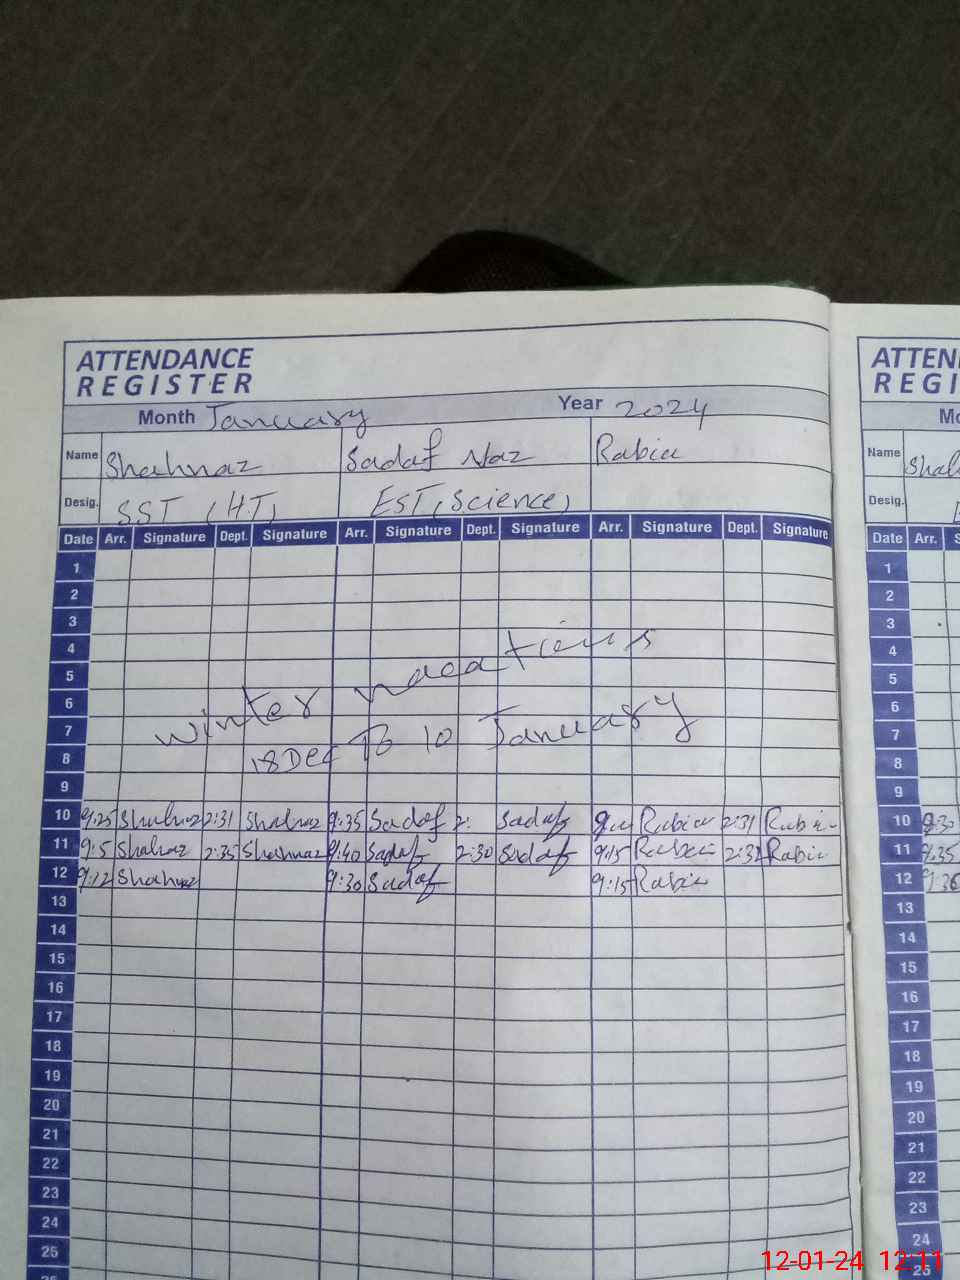 ATTENDANCE
REGISTER
Month January Year 2024
Name Shahnaz Sadaf Naz Rabia
Desig. SST (HT) EST(Science)
Date Arr. Signature Dept. Signature Arr. Signature Dept. Signature Arr. Signature Dept. Signature
1
2
3
4
5
6
7
8
9
winter
18 Dec To 10 January
10 9:25 Shahnaz 2:31 Shahnaz 9:35 Sadaf 2: Sadaf Rabia 2:31 Rabia
11 9:5 Shahnaz 2:35 Shahnaz 9:40 Sadaf 2:30 Sadaf 9:15 Rabia 2:32 Rabia
12 9:12 Shahnaz 9:30 Sadaf 9:15 Rabia
13
14
15
16
17
18
19
20
21
22
23
24
25
ATTEN
REGI
Name Shah
Desig.
Date Arr.
1
2
3
4
5
6
7
8
9
10 9:30
11 9:35
12 9:36
13
14
15
16
17
18
19
20
21
22
23
24
25
12-01-24 12:11